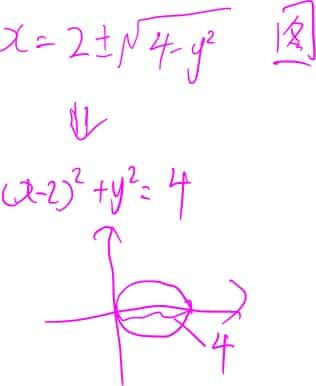 x = 2 ± √(4-y²) 图
⇓
(x-2)² + y² = 4
4